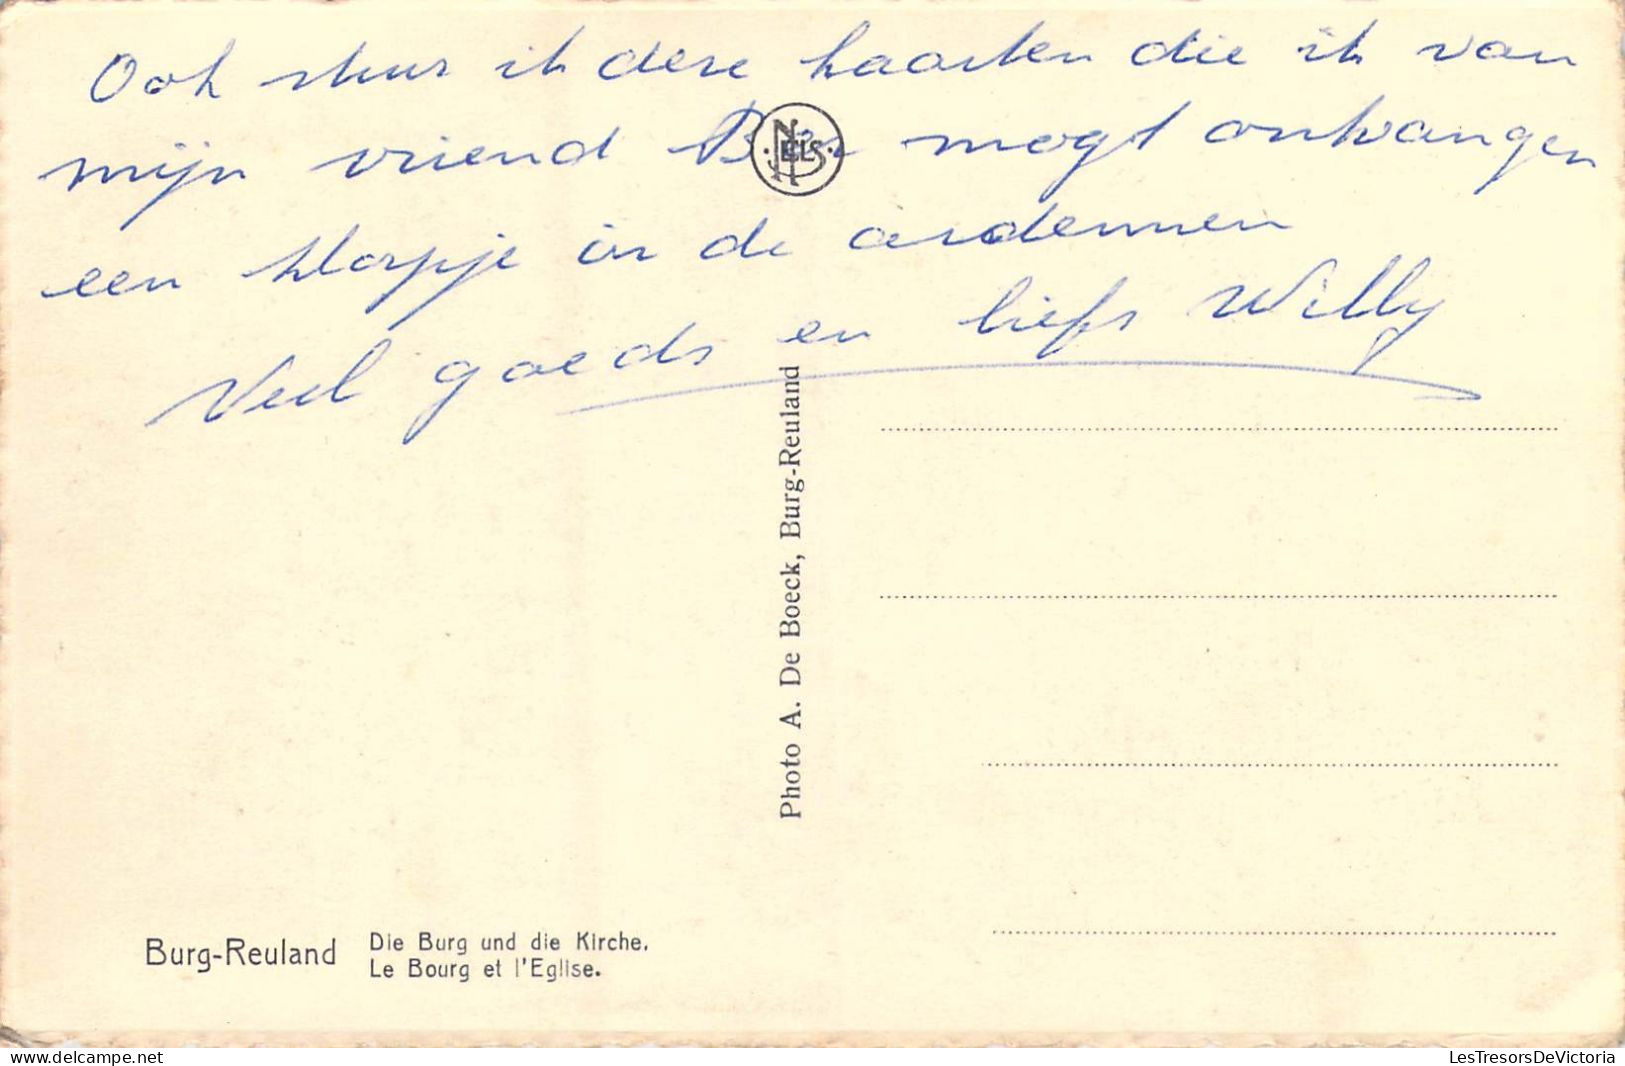 Ook stuur ik deze kaarten die ik van
mijn vriend mogt ontvangen
een in de ardennen
Veel goeds en liefs Willy
NELS
Photo A. De Boeck, Burg-Reuland
Burg-Reuland
Die Burg und die Kirche.
Le Bourg et l'Eglise.
delcampe.net
LesTresorsDeVictoria